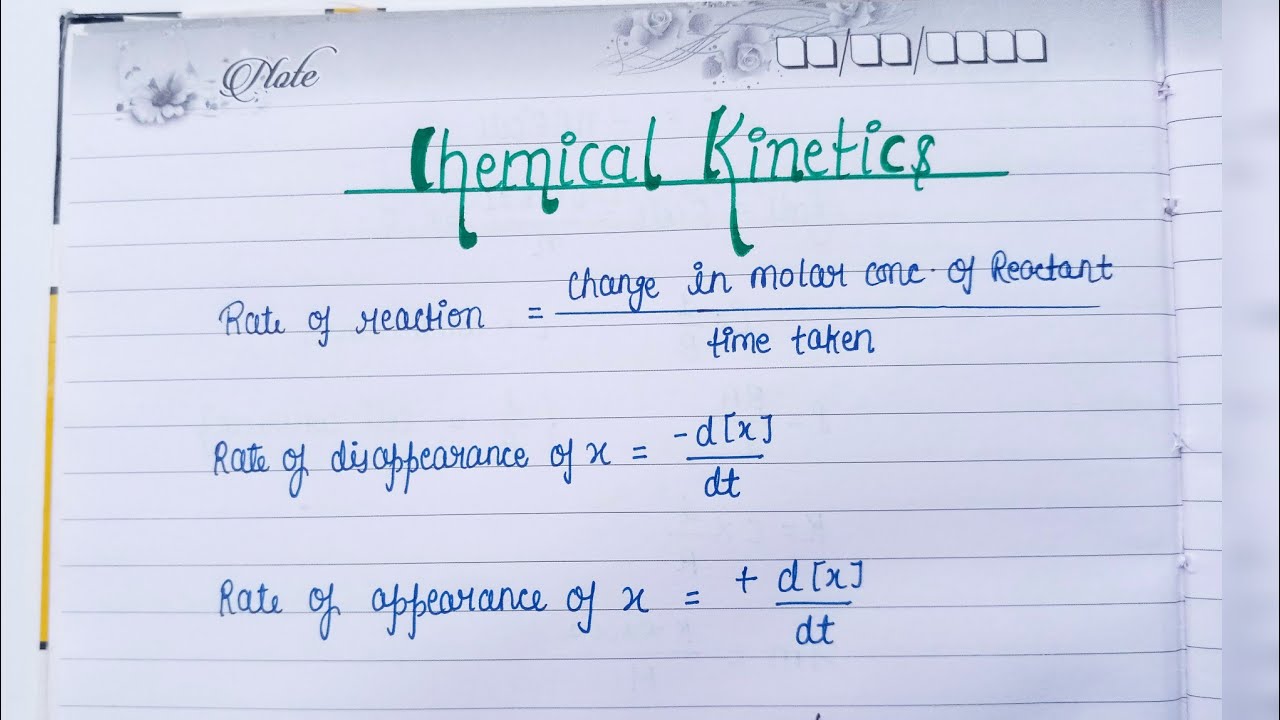 Note
Chemical Kinetics
Rate of reaction = change in molar conc. of Reactant / time taken
Rate of disappearance of x = -d[x] / dt
Rate of appearance of x = + d[x] / dt